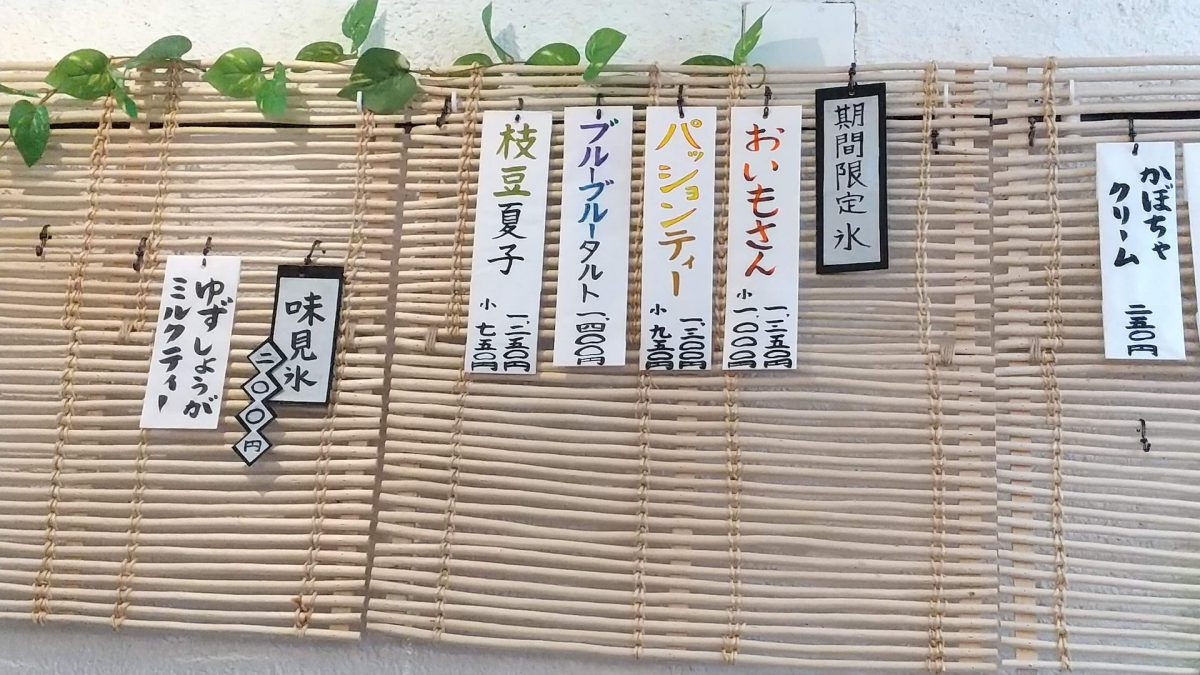 かぼちゃ
クリーム
二五〇円
期間限定氷
おいもさん
一、三五〇円
小 一、〇〇〇円
パッションティー
一、三〇〇円
小 九五〇円
ブルーブルータルト 一、四〇〇円
枝豆夏子
一、二五〇円
小 七五〇円
味見氷
二〇〇円
ゆずしょうが
ミルクティー